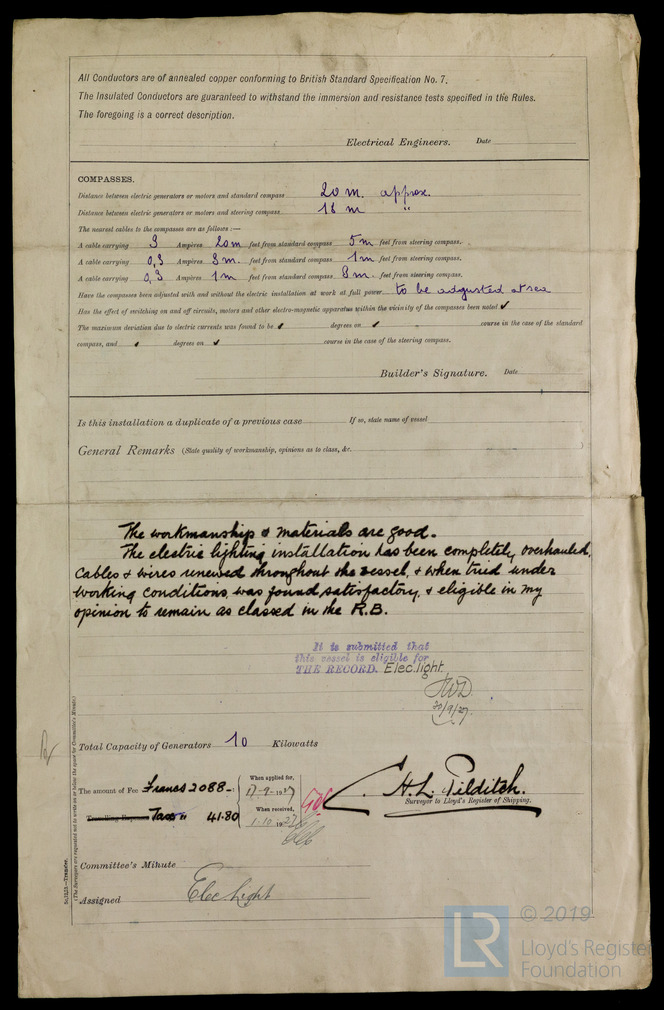 All Conductors are of annealed copper conforming to British Standard Specification No. 7.
The Insulated Conductors are guaranteed to withstand the immersion and resistance tests specified in the Rules.
The foregoing is a correct description.
Electrical Engineers. Date
COMPASSES.
Distance between electric generators or motors and standard compass 20 m. approx.
Distance between electric generators or motors and steering compass 18 m "
The nearest cables to the compasses are as follows :—
A cable carrying 3 Ampères 20m feet from standard compass 5m feet from steering compass.
A cable carrying 0,3 Ampères 3m. feet from standard compass 1m feet from steering compass.
A cable carrying 0,3 Ampères 1m feet from standard compass 3m. feet from steering compass.
Have the compasses been adjusted with and without the electric installation at work at full power to be adgusted at sea
Has the effect of switching on and off circuits, motors and other electro-magnetic apparatus within the vicinity of the compasses been noted ✓
The maximum deviation due to electric currents was found to be ✓ degrees on ✓ course in the case of the standard
compass, and ✓ degrees on ✓ course in the case of the steering compass.
Builder's Signature. Date
Is this installation a duplicate of a previous case If so, state name of vessel
General Remarks (State quality of workmanship, opinions as to class, &c. )
The workmanship & materials are good.
The electric lighting installation has been completely overhauled,
cables & wires renewed throughout the vessel, & when tried under
working conditions, was found satisfactory, & eligible in my
opinion to remain as classed in the R.B.
It is submitted that
this vessel is eligible for
THE RECORD. Elec. light.
JWD.
30/9/27.
Total Capacity of Generators 10 Kilowatts
The amount of Fee Francs 2088-: When applied for, 17-9-1927
H.L. Pilditch.
Surveyor to Lloyd's Register of Shipping.
Travelling Expenses Taxe " 41.80 When received, 1-10-1927
Committee's Minute
Assigned Elec Light
(The Surveyors are requested not to write on or below the space for Committee's Minute.)
© 2019
LR
Lloyd's Register
Foundation